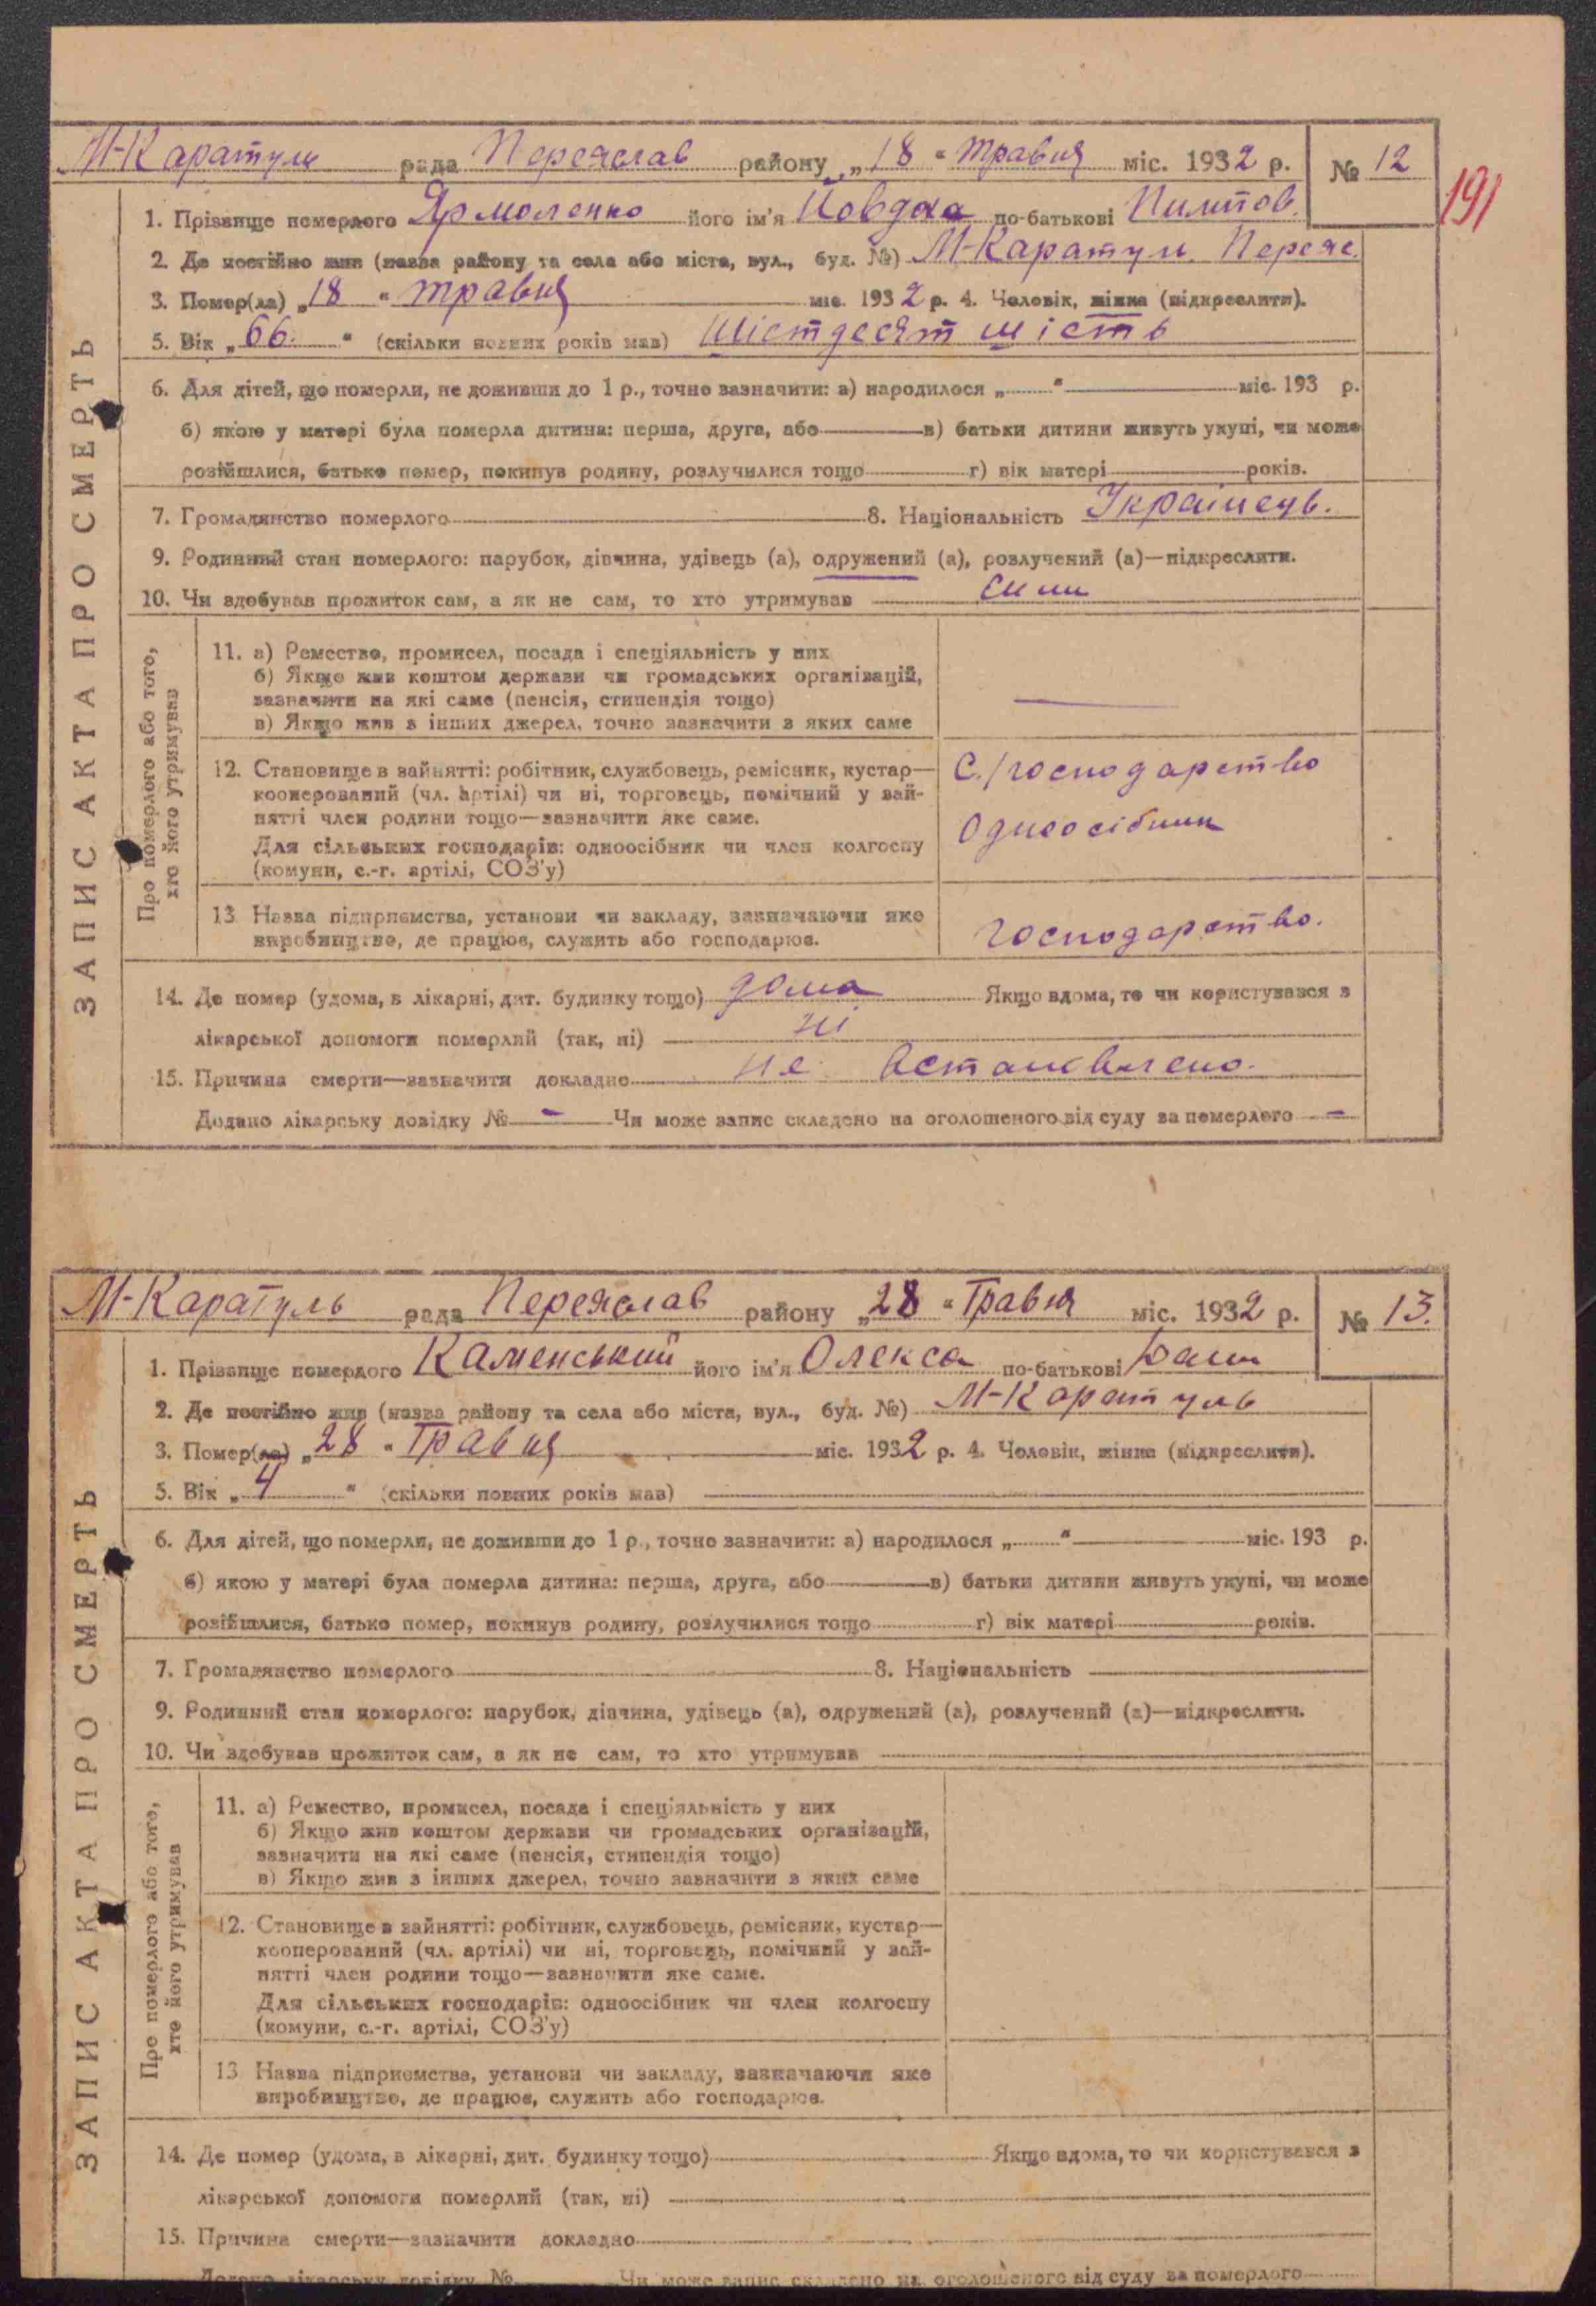 М-Каратули рада Переяслав району „18“ травня міс. 1932 р. № 12
191
1. Прізвище померлого Ярмоленко його ім'я Йовдоха по-батькові Пилипов.
2. Де постійно жив (назва району та села або міста, вул., буд. №) М-Каратули. Переяс.
3. Помер(ла) „18“ травня міс. 1932 р. 4. Чоловік, жінка (підкреслити).
5. Вік „66.“ (скільки повних років мав) Шістдесят шість
6. Для дітей, що померли, не доживши до 1 р., точно зазначити: а) народилося „ “ міс. 193 р.
б) якою у матері була померла дитина: перша, друга, або в) батьки дитини живуть укупі, чи може
розійшлися, батько помер, покинув родину, розлучилися тощо г) вік матері років.
7. Громадянство померлого 8. Національність Українець.
9. Родинний стан померлого: парубок, дівчина, удівець (а), одружений (а), розлучений (а)—підкреслити.
10. Чи здобував прожиток сам, а як не сам, то хто утримував сини
ЗАПИС АКТА ПРО СМЕРТЬ
Про померлого або того,
хто його утримував
11. а) Ремество, промисел, посада і спеціяльність у них
б) Якщо жив коштом держави чи громадських організацій,
зазначити на які саме (пенсія, стипендія тощо)
в) Якщо жив з інших джерел, точно зазначити з яких саме
12. Становище в зайнятті: робітник, службовець, ремісник, кустар—
кооперований (чл. артілі) чи ні, торговець, помічний у зай-
нятті член родини тощо—зазначити яке саме.
Для сільських господарів: одноосібник чи член колгоспу
(комуни, с.-г. артілі, СОЗ'у)
С./господарство
Одноосібник
13 Назва підприємства, установи чи закладу, зазначаючи яке
виробництво, де працює, служить або господарює.
господарство.
14. Де помер (удома, в лікарні, дит. будинку тощо) дома Якщо вдома, то чи користувався з
лікарської допомоги померлий (так, ні) ні
15. Причина смерти—зазначити докладно не встановлено.
Додано лікарську довідку № - Чи може запис складено на оголошеного від суду за померлого -
М-Каратуль рада Переяслав району „28“ Травня міс. 1932 р. № 13.
1. Прізвище померлого Каменський його ім'я Олекса по-батькові
2. Де постійно жив (назва району та села або міста, вул., буд. №) М-Каратуль
3. Помер(ла) „28“ Травня міс. 1932 р. 4. Чоловік, жінка (підкреслити).
5. Вік „4“ (скільки повних років мав)
6. Для дітей, що померли, не доживши до 1 р., точно зазначити: а) народилося „ “ міс. 193 р.
б) якою у матері була померла дитина: перша, друга, або в) батьки дитини живуть укупі, чи може
розійшлися, батько помер, покинув родину, розлучилися тощо г) вік матері років.
7. Громадянство померлого 8. Національність
9. Родинний стан померлого: парубок, дівчина, удівець (а), одружений (а), розлучений (а)—підкреслити.
10. Чи здобував прожиток сам, а як не сам, то хто утримував
ЗАПИС АКТА ПРО СМЕРТЬ
Про померлого або того,
хто його утримував
11. а) Ремество, промисел, посада і спеціяльність у них
б) Якщо жив коштом держави чи громадських організацій,
зазначити на які саме (пенсія, стипендія тощо)
в) Якщо жив з інших джерел, точно зазначити з яких саме
12. Становище в зайнятті: робітник, службовець, ремісник, кустар—
кооперований (чл. артілі) чи ні, торговець, помічний у зай-
нятті член родини тощо—зазначити яке саме.
Для сільських господарів: одноосібник чи член колгоспу
(комуни, с.-г. артілі, СОЗ'у)
13 Назва підприємства, установи чи закладу, зазначаючи яке
виробництво, де працює, служить або господарює.
14. Де помер (удома, в лікарні, дит. будинку тощо) Якщо вдома, то чи користувався з
лікарської допомоги померлий (так, ні)
15. Причина смерти—зазначити докладно
Додано лікарську довідку № Чи може запис складено на оголошеного від суду за померлого